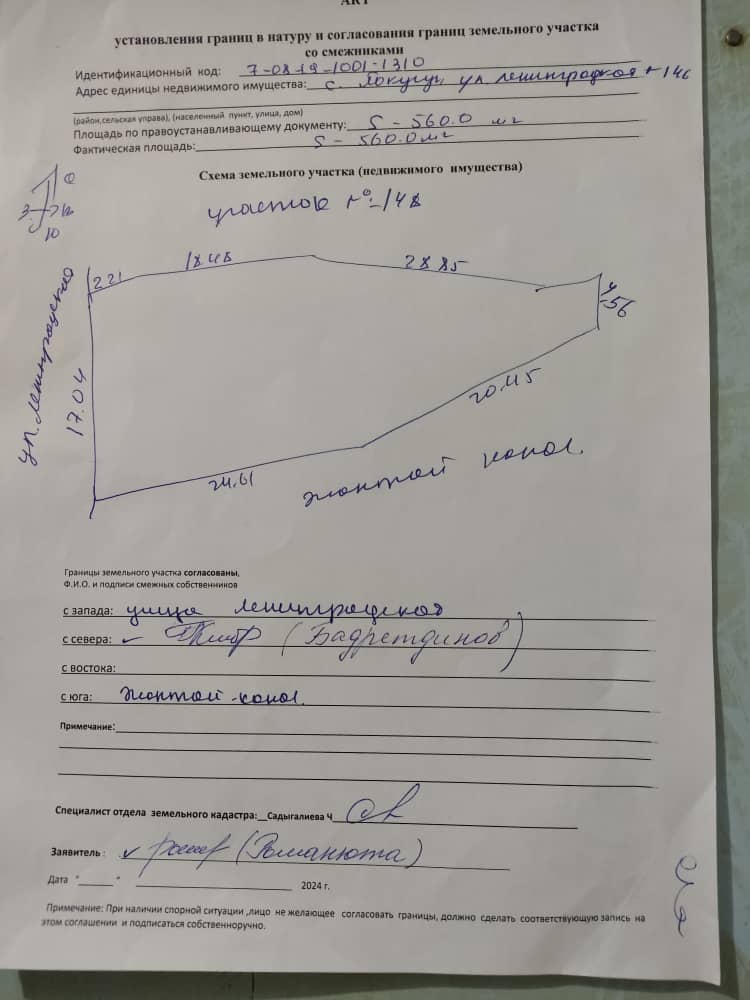 АКТ
установления границ в натуру и согласования границ земельного участка
со смежниками
Идентификационный код: 7-08-19-1001-1310
Адрес единицы недвижимого имущества: с. ул. Ленинградская № 146
(район,сельская управа), (населенный пункт, улица, дом)
Площадь по правоустанавливающему документу: S - 560.0 м2
Фактическая площадь: S - 560.0 м2
Схема земельного участка (недвижимого имущества)
участок № 148
З В
Ю
2.21
18.48
28.85
4.56
ул. Ленинградская
17.04
20.45
24.61
жонтой канал.
Границы земельного участка согласованы,
Ф.И.О. и подписи смежных собственников
с запада: улица Ленинградская
с севера: (Бадретдинов)
с востока:
с юга: жонтой-канал.
Примечание:
Специалист отдела земельного кадастра: Садыгалиева Ч
Заявитель: (Романюта)
Дата "______" 2024 г.
Примечание: При наличии спорной ситуации ,лицо не желающее согласовать границы, должно сделать соответствующую запись на
этом соглашении и подписаться собственноручно.